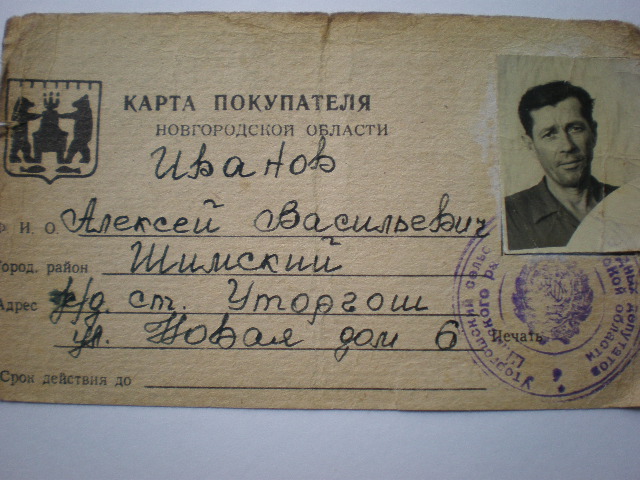 КАРТА ПОКУПАТЕЛЯ
НОВГОРОДСКОЙ ОБЛАСТИ
Иванов
Ф. И. О. Алексей Васильевич
Город. район Шимский
Адрес ж/д. ст. Уторгош
ул. Новая дом 6
Печать
Срок действия до
Уторгошский сельс
ского ра
депутатов
ской области